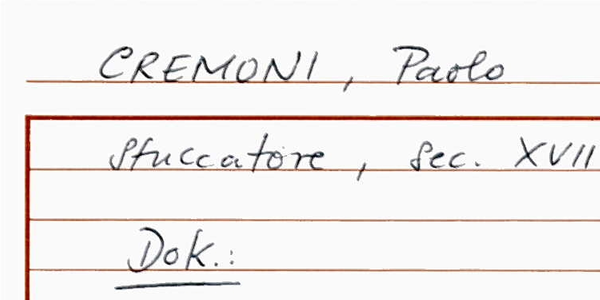 CREMONI, Paolo
Stuccatore, sec. XVII
Dok.: